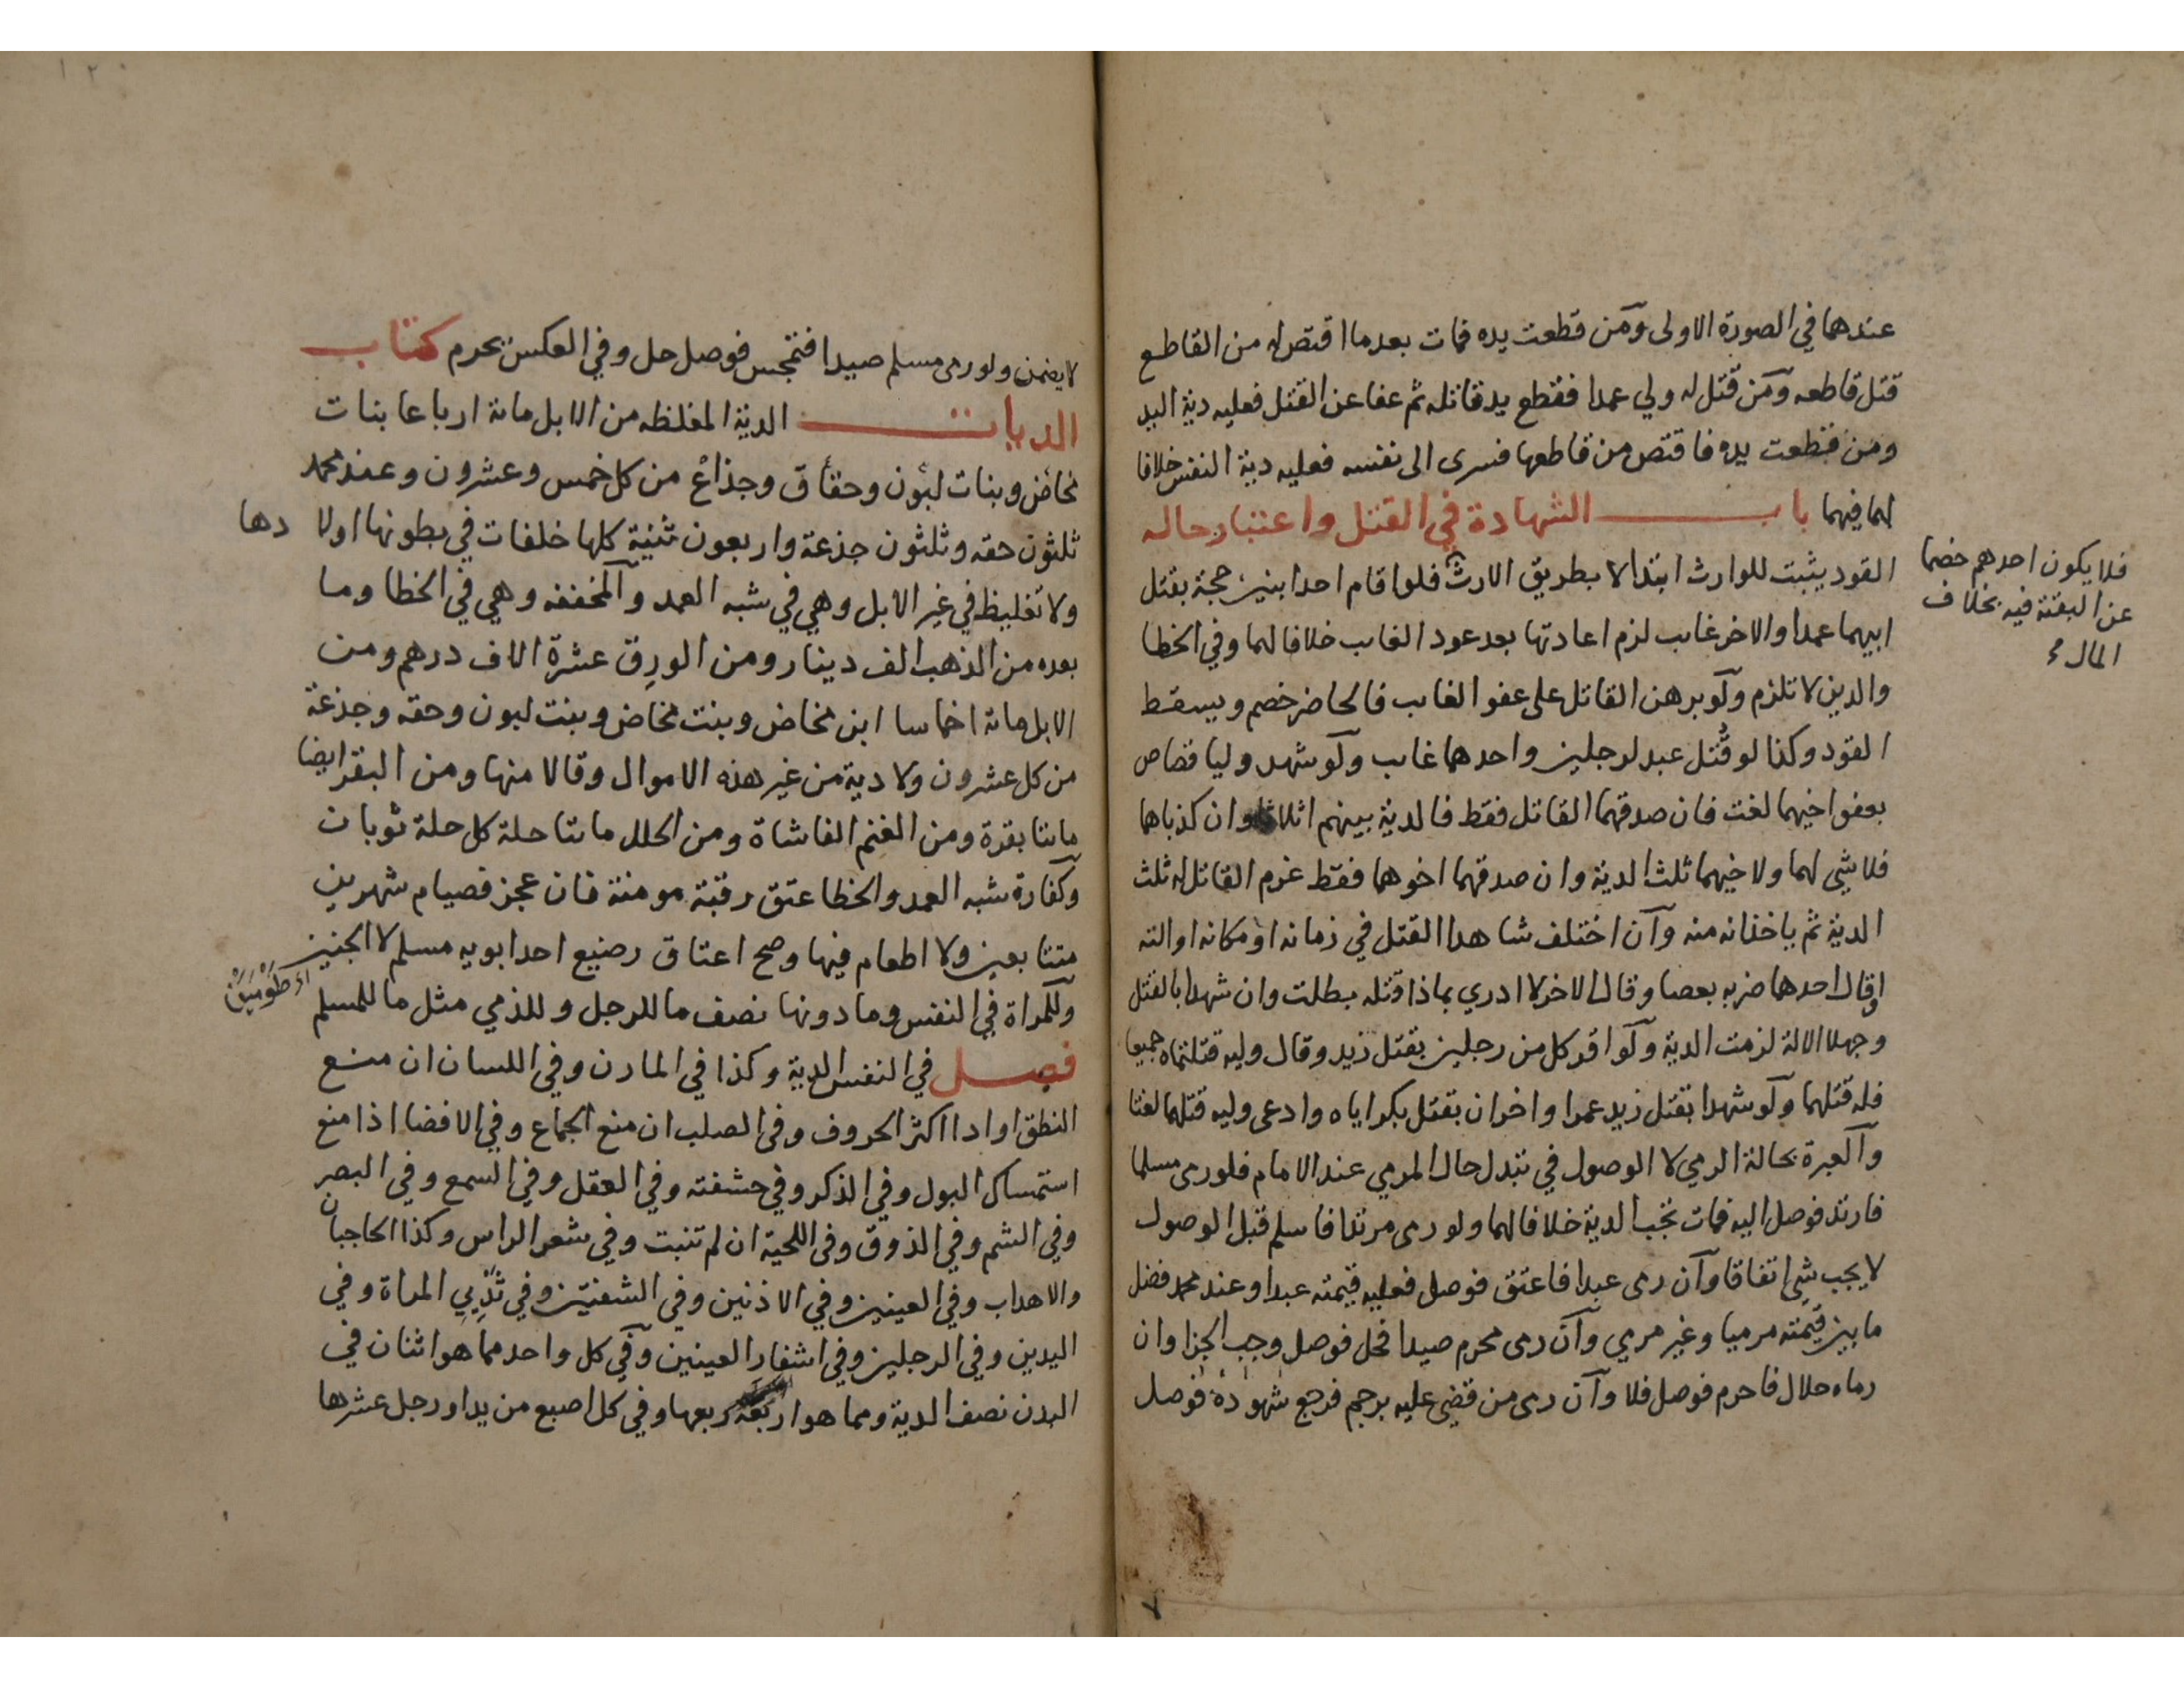 عندهما في الصورة الاولى ومن قطعت يده فمات بعدما اقتص له من القاطع
قتل قاطعه ومن قتل له ولي عمدا فقطع يد قاتله ثم عفا عن القتل فعليه دية اليد
ومن قطعت يده فاقتص من قاطعها فسرى الى نفسه فعليه دية النفس خلافا
لهما فيهما باب الشهادة في القتل واعتبار حاله
القود يثبت للوارث ابتدا لا بطريق الارث فلو اقام احد ابنين حجة بقتل
ابيهما عمدا والاخر غايب لزم اعادتها بعد عود الغايب خلافا لهما وفي الخطا
والدين لا تلزم ولو برهن القاتل على عفو الغايب فالحاضر خصم ويسقط
القود وكذا لو قتل عبد لرجلين واحدهما غايب ولو شهد وليا قصاص
بعفو اخيهما لغت فان صدقهما القاتل فقط فالدية بينهم اثلاثا وان كذباهما
فلا شي لهما ولاخيهما ثلث الدية وان صدقهما اخوهما فقط غرم القاتل له ثلث
الدية ثم ياخذانه منه وان اختلف شاهدا القتل في زمانه او مكانه او الته
او قال احدهما ضربه بعصا وقال الاخر لا ادري بماذا قتله بطلت وان شهدا بالقتل
وجهلا الالة لزمت الدية ولو اقر كل من رجلين بقتل زيد وقال وليه قتلتماه جميعا
فله قتلهما ولو شهدا بقتل زيد عمرا واخران بقتل بكر اياه وادعى وليه قتلهما لغتا
والعبرة بحالة الرمي لا الوصول في تبدل حال المرمي عند الامام فلو رمى مسلما
فارتد فوصل اليه فمات تجب الدية خلافا لهما ولو رمى مرتدا فاسلم قبل الوصول
لا يجب شي اتفاقا وان رمى عبدا فاعتق فوصل فعليه قيمته عبدا وعند محمد فضل
ما بين قيمته مرميا وغير مرمي وان رمى محرم صيدا فحل فوصل وجب الجزا وان
رماه حلال فاحرم فوصل فلا وان رمى من قضي عليه برجم فرجع شهوده فوصل
فلا يكون احدهم خصما
عن البقية فيه بخلاف
المال
لا يضمن ولو رمى مسلم صيدا فتمجس فوصل حل وفي العكس يحرم كتاب
الديات الدية المغلظه من الابل ماية ارباعا بنات
مخاض وبنات لبون وحقاق وجذاع من كل خمس وعشرون وعند محمد
ثلثون حقه وثلثون جذعة واربعون ثنية كلها خلفات في بطونها اولا دها
ولا تغليظ في غير الابل وهي في شبه العمد والمخففه وهي في الخطا وما
بعده من الذهب الف دينار ومن الورق عشرة الاف درهم ومن
الابل ماية اخماسا ابن مخاض وبنت مخاض وبنت لبون وحقه وجذعة
من كل عشرون ولا دية من غير هذه الاموال وقالا منها ومن البقر ايضا
مايتا بقرة ومن الغنم الفا شاة ومن الحلل مايتا حلة كل حلة ثوبان
وكفارة شبه العمد والخطا عتق رقبة مومنة فان عجز فصيام شهرين
متتابعين ولا اطعام فيها وصح اعتاق رضيع احد ابويه مسلم لا الجنين
وللمراة في النفس وما دونها نصف ما للرجل وللذمي مثل ما للمسلم
فصل في النفس الدية وكذا في المارن وفي اللسان ان منع
النطق او ادا اكثر الحروف وفي الصلب ان منع الجماع وفي الافضا اذا منع
استمساك البول وفي الذكر وفي حشفته وفي العقل وفي السمع وفي البصر
وفي الشم وفي الذوق وفي اللحية ان لم تنبت وفي شعر الراس وكذا الحاجبان
والاهداب وفي العينين وفي الاذنين وفي الشفتين وفي ثديي المراة وفي
اليدين وفي الرجلين وفي اشفار العينين وفي كل واحد مما هو اثنان في
البدن نصف الدية ومما هو اربعة ربعها وفي كل اصبع من يد او رجل عشرها